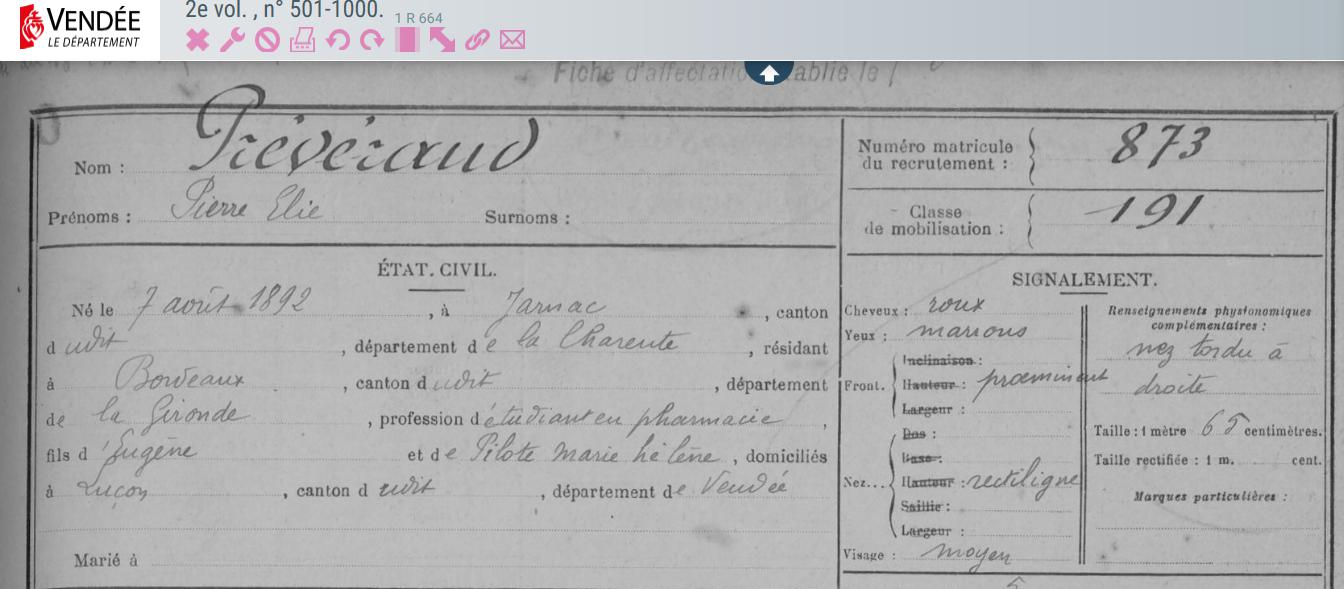 VENDÉE
LE DÉPARTEMENT
2e vol. , n° 501-1000. 1 R 664
Fiche d'affectation établie le
Nom : Prévéraud
Prénoms : Pierre Elie Surnoms :
Numéro matricule du recrutement : 873
Classe de mobilisation : 191
ÉTAT. CIVIL.
Né le 7 août 1892, à Jarnac, canton
dudit, département de la Charente, résidant
à Bordeaux, canton dudit, département
de la Gironde, profession d'étudiant en pharmacie,
fils d'Eugène et de Pilote marie hélène, domiciliés
à Luçon, canton dudit, département de Vendée
Marié à
SIGNALEMENT.
Cheveux : roux
Yeux : marrons
Inclinaison :
Front. Hauteur : proeminent
Largeur :
Dos :
Base :
Nez... Hauteur : rectiligne
Saillie :
Largeur :
Visage : moyen
Renseignements physionomiques
complémentaires :
nez tordu à
droite
Taille : 1 mètre 65 centimètres.
Taille rectifiée : 1 m. cent.
Marques particulières :